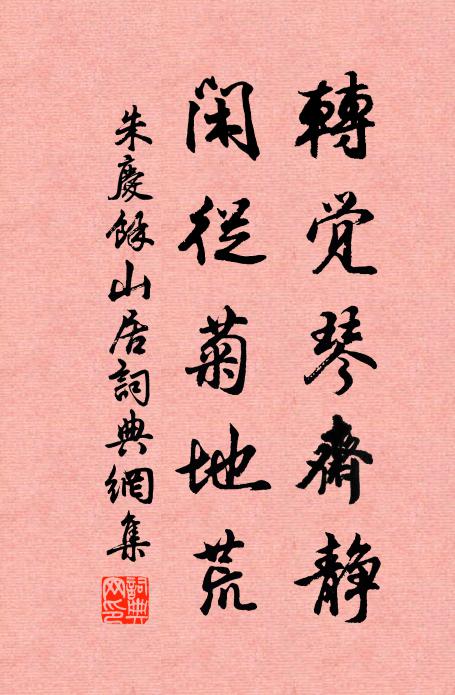 轉覺琴齋静
閑從菊地荒
朱慶餘山居詞典網集
詞典网印